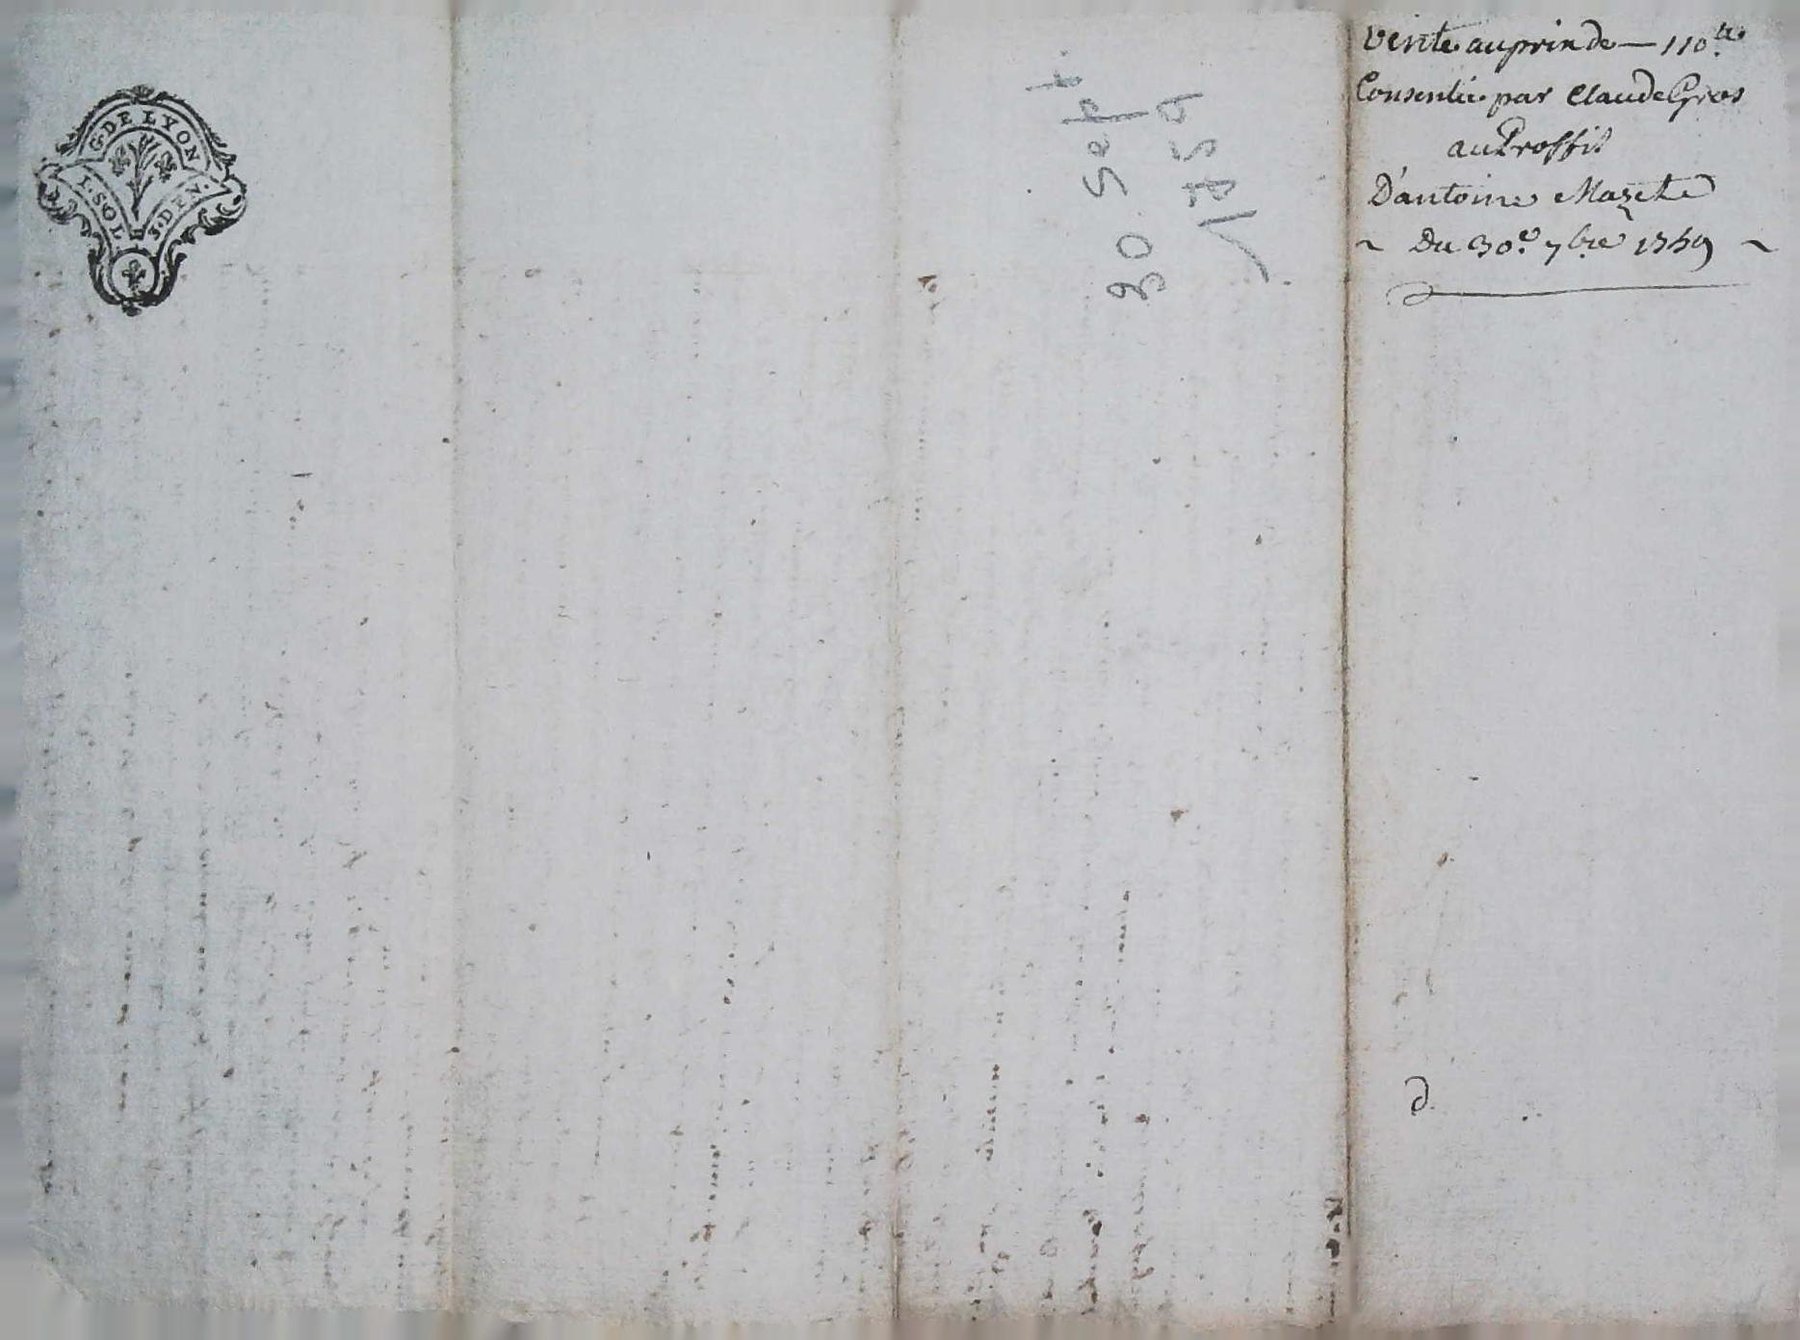 G. DE LYON
1. SOL
3. DEN.
30 Sept.
1759
Vente au prix de — 110.tt
Consentie par Claude Gros
au Proffit
D'antoine Mazet
~ Du 30.e 7bre 1759 ~
d.